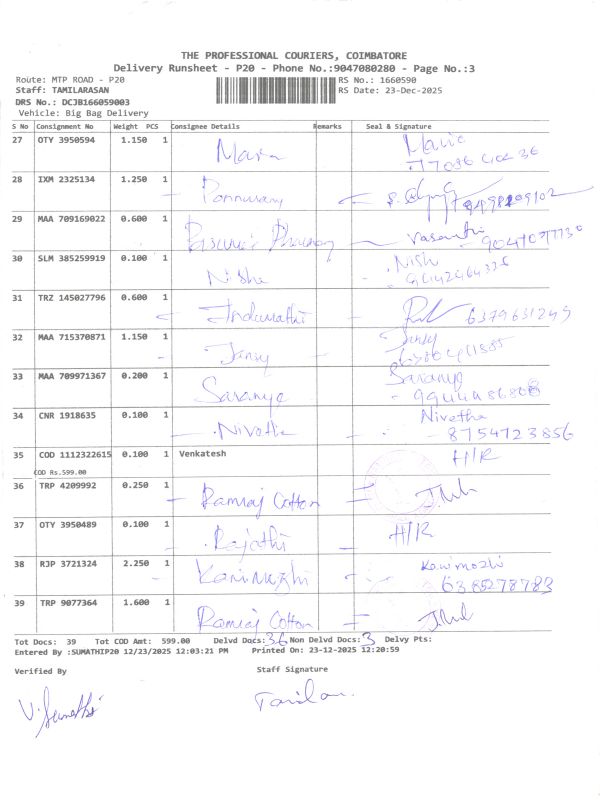 THE PROFESSIONAL COURIERS, COIMBATORE
Delivery Runsheet - P20 - Phone No.:9047080280 - Page No.:3
Route: MTP ROAD - P20
RS No.: 1660590
Staff: TAMILARASAN
RS Date: 23-Dec-2025
DRS No.: DCJB166059003
Vehicle: Big Bag Delivery
S No Consignment No Weight PCS Consignee Details Remarks Seal & Signature
27 OTY 3950594 1.150 1
28 IXM 2325134 1.250 1
29 MAA 709169022 0.600 1 Vasanthi
30 SLM 385259919 0.100 1 Nisha Nish
31 TRZ 145027796 0.600 1 Indumathi 6379631249
32 MAA 715370871 1.150 1 Jansy Jansy
33 MAA 709971367 0.200 1 Saranya Saranya
34 CNR 1918635 0.100 1 Nivetha Nivetha
8754723856
35 COD 1112322615 0.100 1 Venkatesh H/R
COD Rs.599.00
36 TRP 4209992 0.250 1 Ramraj Cotton
37 OTY 3950489 0.100 1 Rajathi H/R
38 RJP 3721324 2.250 1 Kanimozhi Kanimozhi
6385278783
39 TRP 9077364 1.600 1 Ramraj Cotton
Tot Docs: 39 Tot COD Amt: 599.00 Delvd Docs: 36 Non Delvd Docs: 3 Delvy Pts:
Entered By :SUMATHIP20 12/23/2025 12:03:21 PM Printed On: 23-12-2025 12:20:59
Verified By Staff Signature